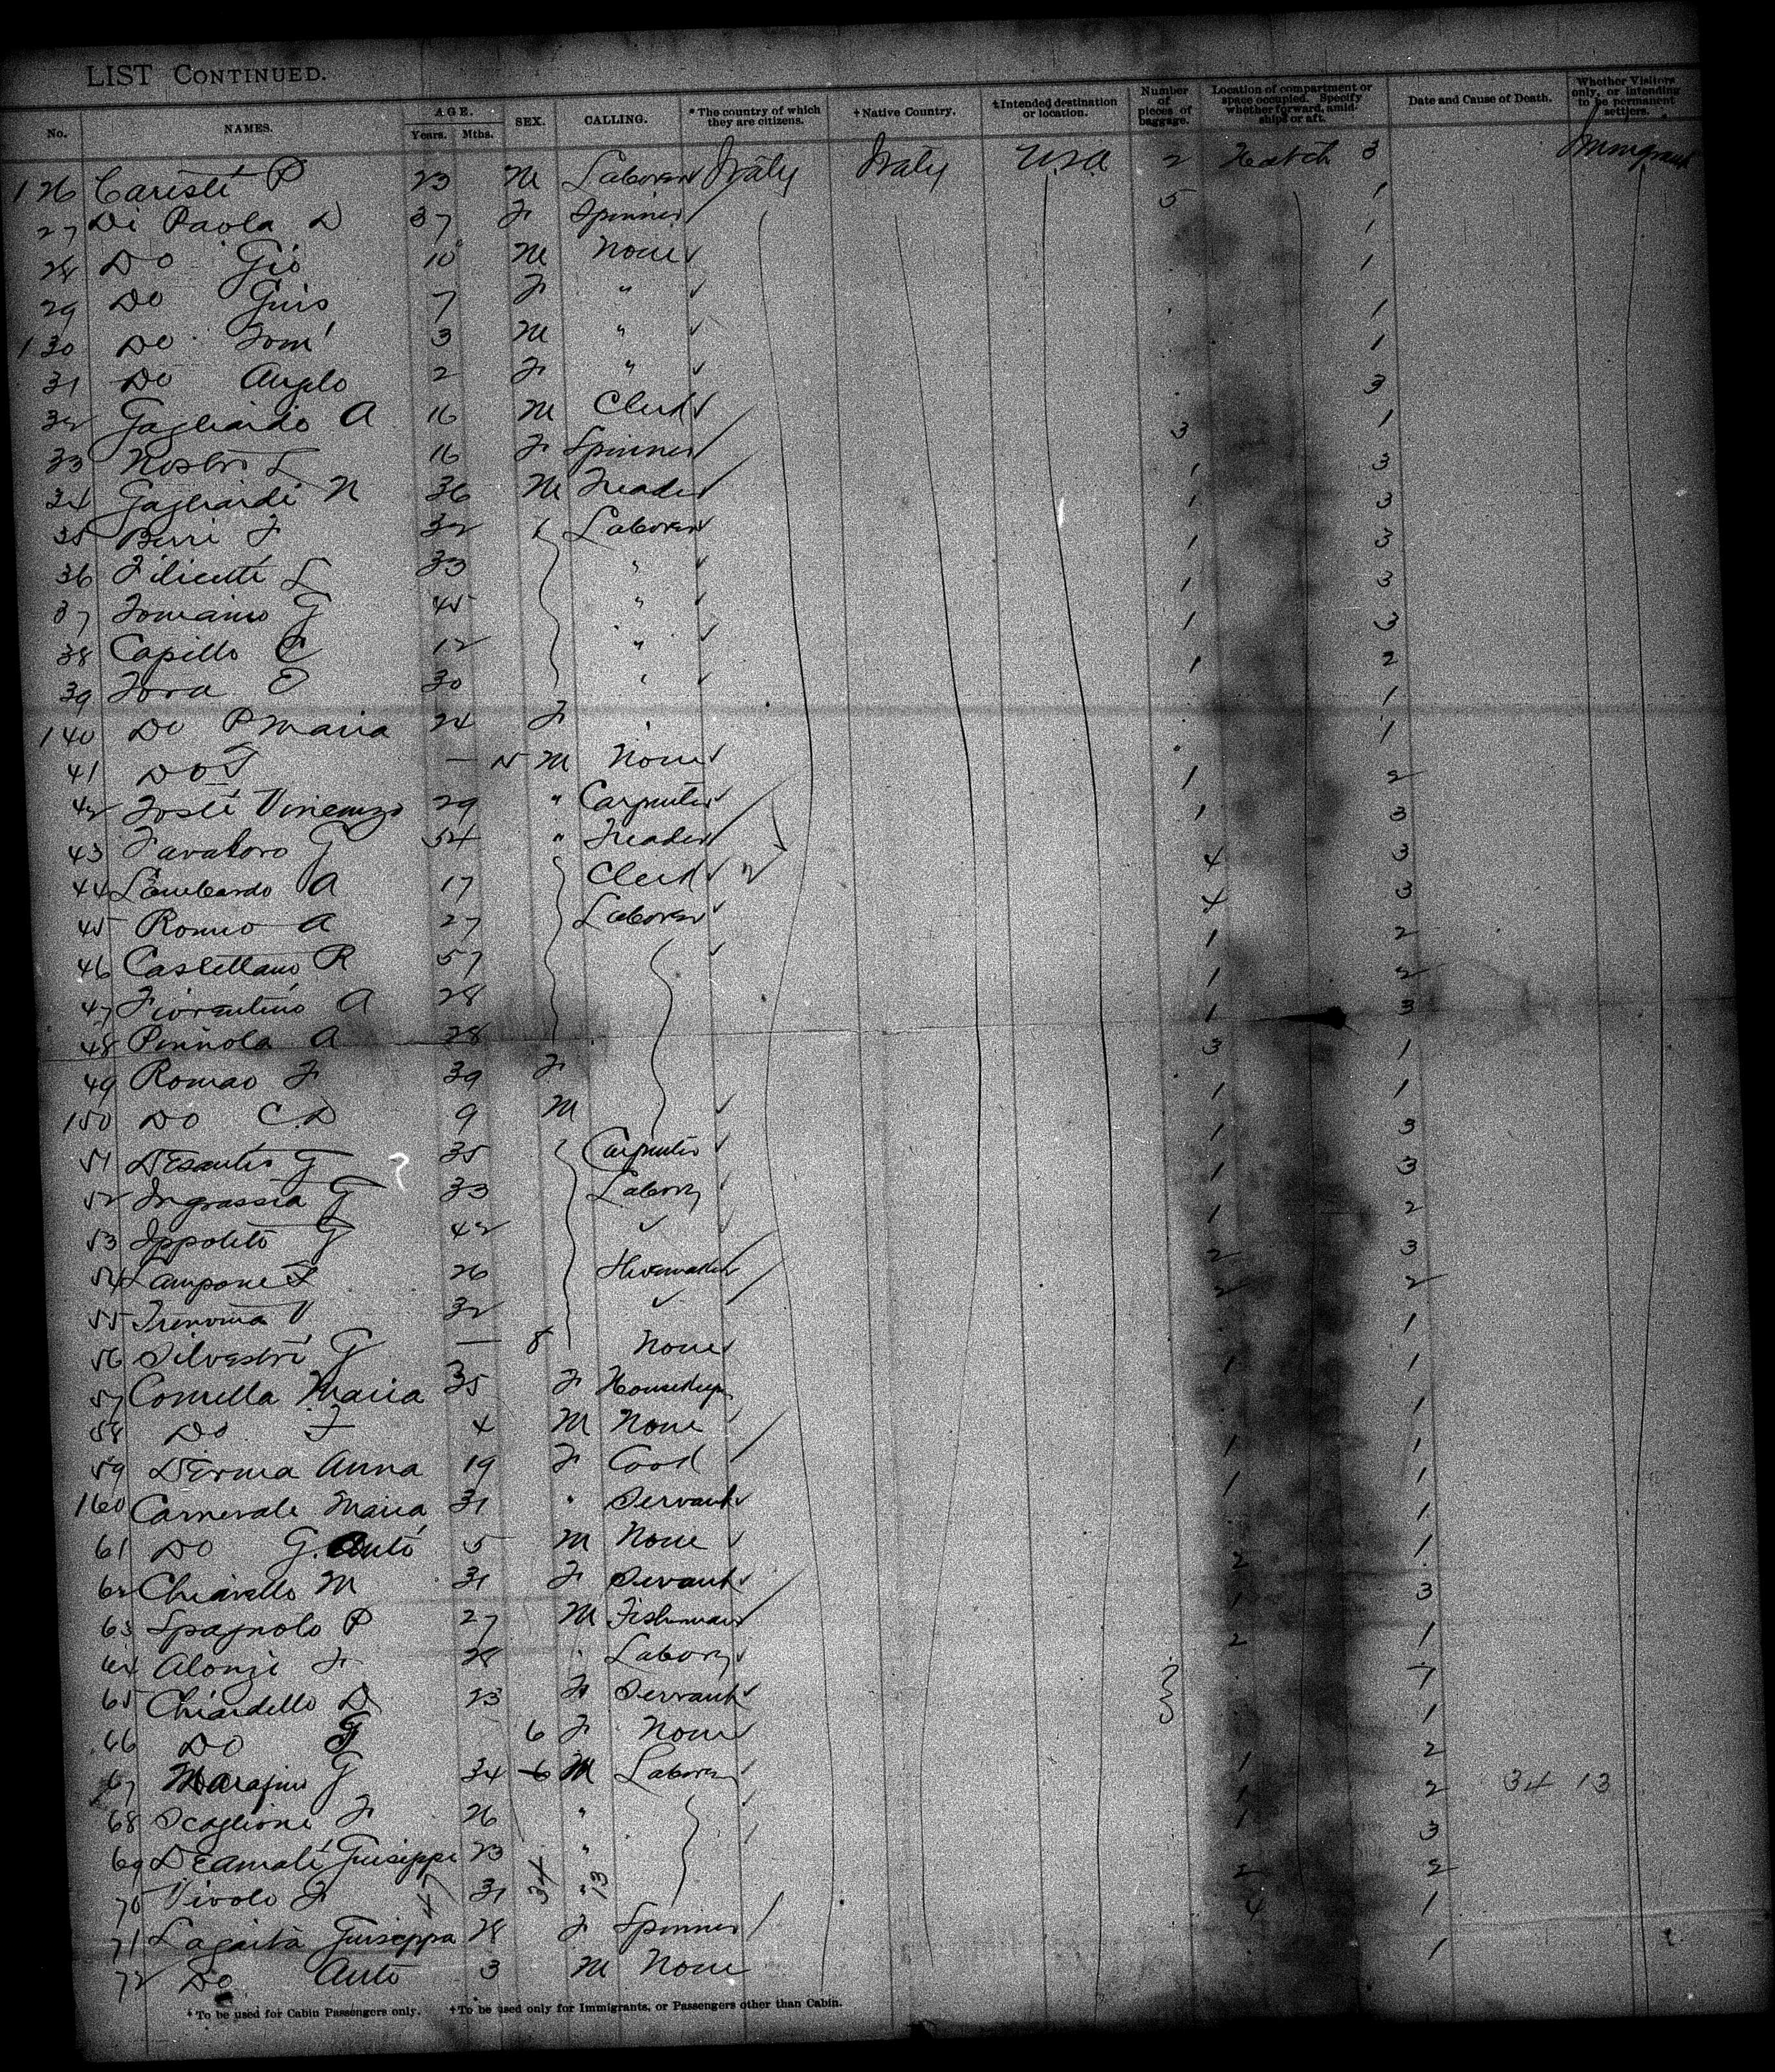 LIST CONTINUED.
No. NAMES. AGE. Years. Mths. SEX. CALLING. *The country of which they are citizens. †Native Country. ‡Intended destination or location. Number of pieces of baggage. Location of compartment or space occupied. Specify whether forward, amidships or aft. Date and Cause of Death. Whether Visitors only, or intending to be permanent settlers.
126 Caristi P 23 M Laborer Italy Italy USA 2 Hatch 3 Immigrant
27 Di Paola D 37 F Spinner 5 1
28 Do Gio 10 M None 1
29 Do Guis 7 F " 1
130 Do Tom 3 M " 1
31 Do Anglo 2 F " 1
32 Gagliardo A 16 M Clerk 3
33 16 F Spinner 3 1
34 Gagliardi N 36 M Trader 1 3
35 Burri F 32 Laborer 1 3
36 Filicetti L 33 " 1 3
37 Tomaino G 45 " 1 3
38 Capillo C 12 " 1 3
39 Tora E 30 " 1 2
140 Do P Maria 24 F " 1
41 Do T — 5 M None 1
42 Tosti Vincenzo 29 " Carpenter 1 2
43 Favaloro G 54 " Trader 1 3
44 Lombardo A 17 Clerk 4 3
45 Romeo A 27 Laborer 4 3
46 Castellano R 57 1 2
47 Fiorentino A 28 1 2
48 Pinnola A 28 1 3
49 Romao F 39 F 3 1
150 Do C.D 9 M 1 1
51 DEsantis G ? 35 Carpenter 1 3
52 Ingrassia G 33 Labory 1 3
53 Ippolito G 42 1 2
54 Lampone F 26 Shoemaker 2 3
55 V 32 2 2
56 Silvestri G — 8 None 1
57 Comella Maria 35 F Housekeep 1 1
58 Do F 4 M None 1
59 DErma Anna 19 F Cook 1 1
160 Carnevale Maria 31 " Servant 1 1
61 Do G. Anto 5 M None 1
62 Chiarello M 31 F Servant 2 1
63 Spagnolo P 27 M Fishman 1 3
64 Alonzi F 28 " Labory 2 1
65 Chiardello D 23 F Servant 1
66 Do G 6 F None 1
67 Marafino G 34 6 M Labory 1 2
68 Scaglione F 26 " 1 2 34 13
69 DEamali Guiseppi 23 " 1 3
70 Vivolo F 31 " 2 2
47 34 13
71 Lagaita Guiseppa 28 F Spinner 4 1
72 Do Anto 3 M None 1
* To be used for Cabin Passengers only. †To be used only for Immigrants, or Passengers other than Cabin.